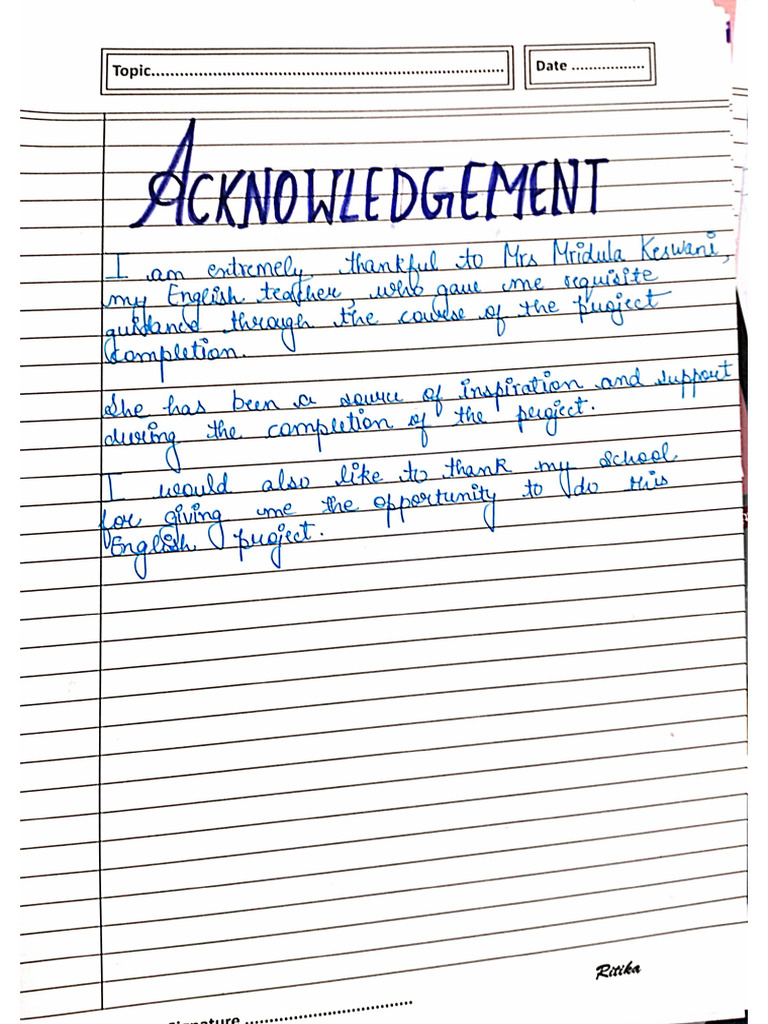 Topic.......................................................................... Date .................
ACKNOWLEDGEMENT
I am extremely thankful to Mrs Mridula Keswani,
my English teacher, who gave me requisite
guidance through the course of the project
completion.
She has been a source of inspiration and support
during the completion of the project.
I would also like to thank my school
for giving me the opportunity to do this
English project.
Ritika
Signature ........................................